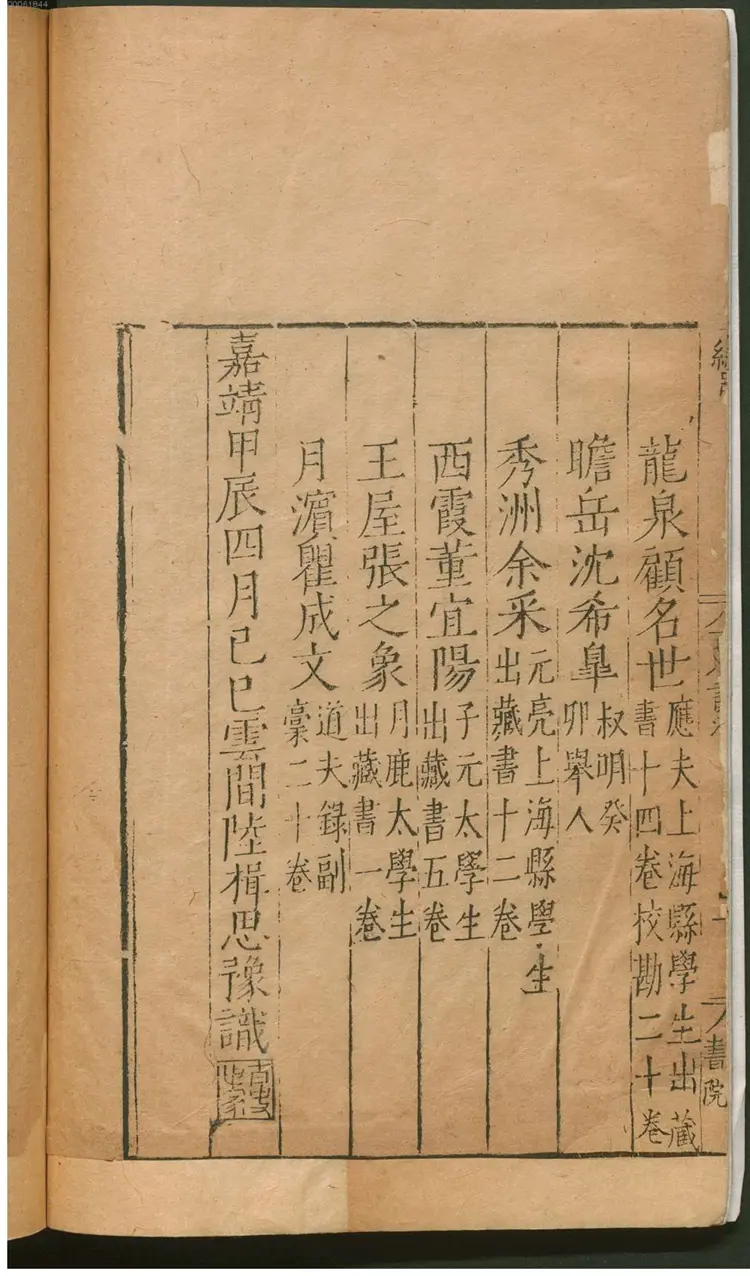 龍泉顧名世應夫上海縣學生出藏書十四卷校勘二十卷
瞻岳沈希臯叔明癸卯舉人
秀洲余采元亮上海縣學生出藏書十二卷
西霞董宜陽子元太學生出藏書五卷
王屋張之象月鹿太學生出藏書一卷
月濵瞿成文道夫録副稾二十卷
嘉靖甲辰四月己巳雲間陸楫思豫識
書院
00061844